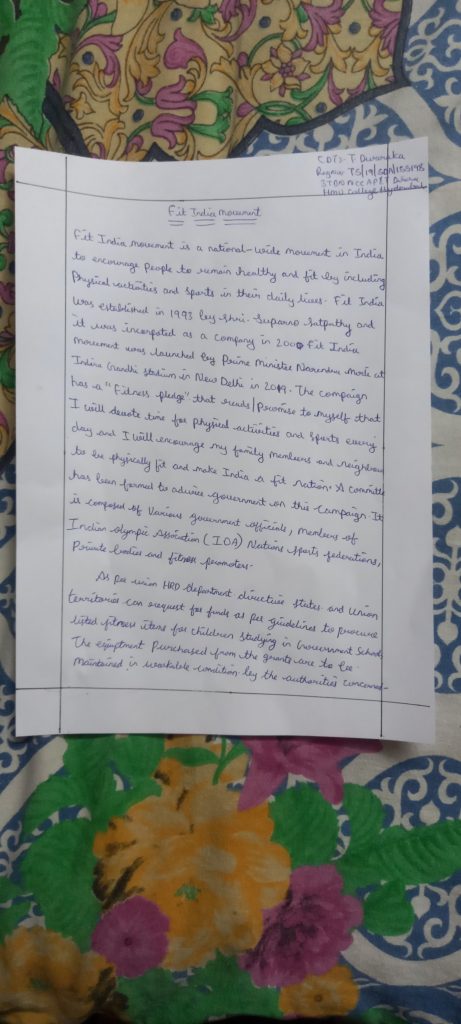 CDT:- T Dwaraka
Regno:- TS/19/SDN/155198
HMV College Hyderabad
Fit India movement
Fit India movement is a national-wide movement in India
to encourage people to remain healthy and fit by including
Physical activities and sports in their daily lives. Fit India
was established in 1993 by Shri. Suparno Satpathy and
it was incorpated as a company in 2000 Fit India
movement was launched by Prime Minister Narendra modi at
Indira Gandhi stadium in New Delhi in 2019. The campaign
has a "Fitness pledge" that reads/Promise to myself that
I will devote time for physical activities and sports every
day and I will encourage my family members and neighbour
to be physically fit and make India a fit nation. A committe
has been formed to advice government on this campaign. It
is composed of various government officials, members of
Indian olympic Association (IOA) Nations sports federations,
Private bodies and fitness promoters.
As per union HRD department directive states and Union
territories can request for funds as per guidelines to procure
listed fitness items for children studying in Government Schools
The equiptment Purchased from the grants are to be
maintained in workable condition by the authorities concerned.